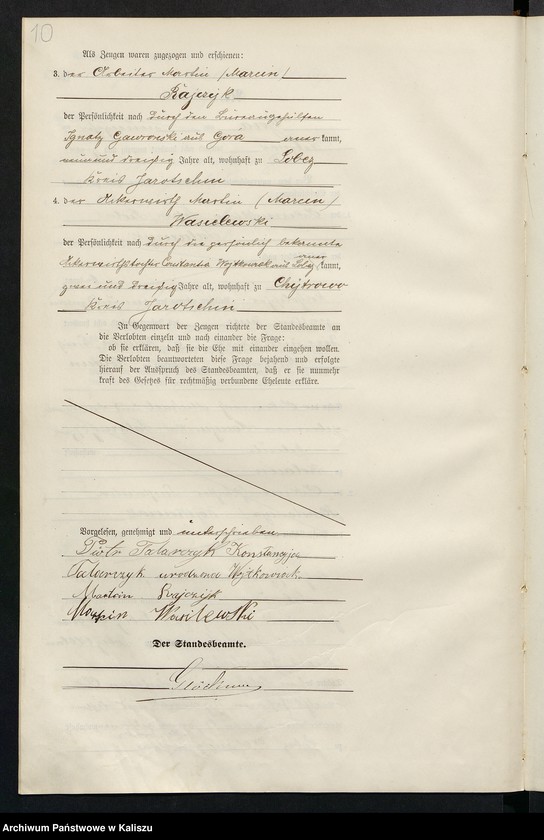 10
Als Zeugen waren zugezogen und erschienen:
3. der Arbeiter Martin (Marcin)
Rajczyk
der Persönlichkeit nach durch den Büreaugehülfen
Ignatz Gawronski aus Góra anerkannt,
neunund dreißig Jahre alt, wohnhaft zu
Kreis Jarotschin
4. der Ackerwirth Martin (Marcin)
Wasielewski
der Persönlichkeit nach durch die persönlich bekannte
Ackerwirthstochter Constantia Wojtkowiak aus anerkannt,
zwei und dreißig Jahre alt, wohnhaft zu
Kreis Jarotschin
In Gegenwart der Zeugen richtete der Standesbeamte an
die Verlobten einzeln und nach einander die Frage:
ob sie erklären, daß sie die Ehe mit einander eingehen wollen.
Die Verlobten beantworteten diese Frage bejahend und erfolgte
hierauf der Ausspruch des Standesbeamten, daß er sie nunmehr
kraft des Gesetzes für rechtmäßig verbundene Eheleute erkläre.
Vorgelesen, genehmigt und unterschrieben
Piotr Tatarczyk Konstancyja
Tatarczyk urodzona Wojtkowiak
Martin Rajczyk
Marcin Wasilewski
Der Standesbeamte.
Archiwum Państwowe w Kaliszu